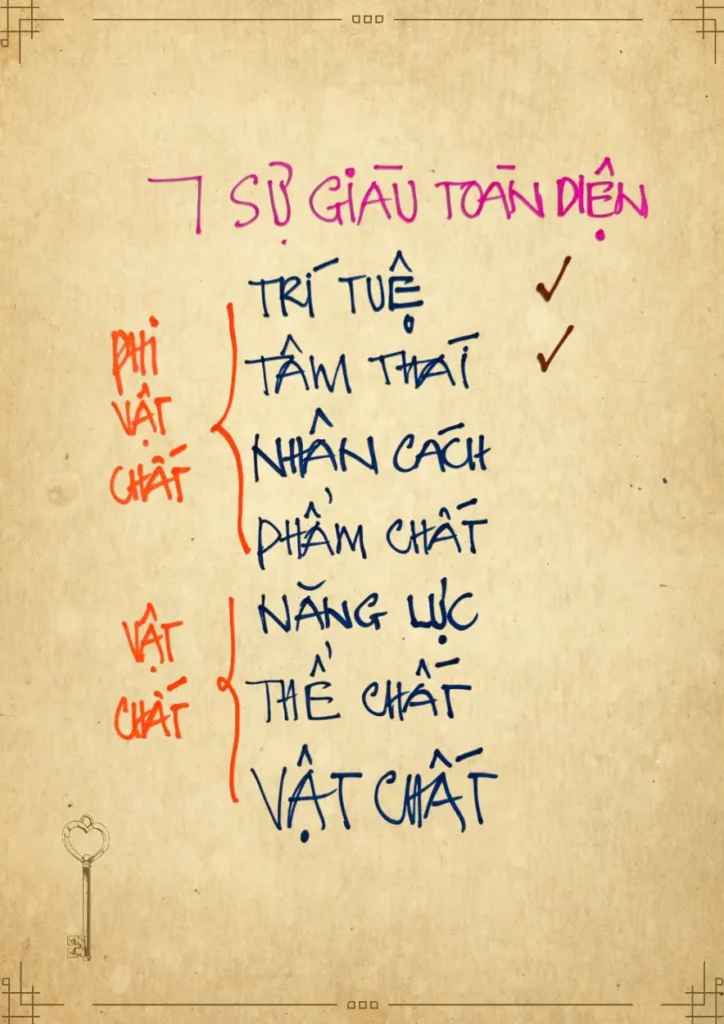 7 SỰ GIÀU TOÀN DIỆN
TRÍ TUỆ
TÂM THÁI
NHÂN CÁCH
PHẨM CHẤT
NĂNG LỰC
THỂ CHẤT
VẬT CHẤT
PHI
VẬT
CHẤT
VẬT
CHẤT